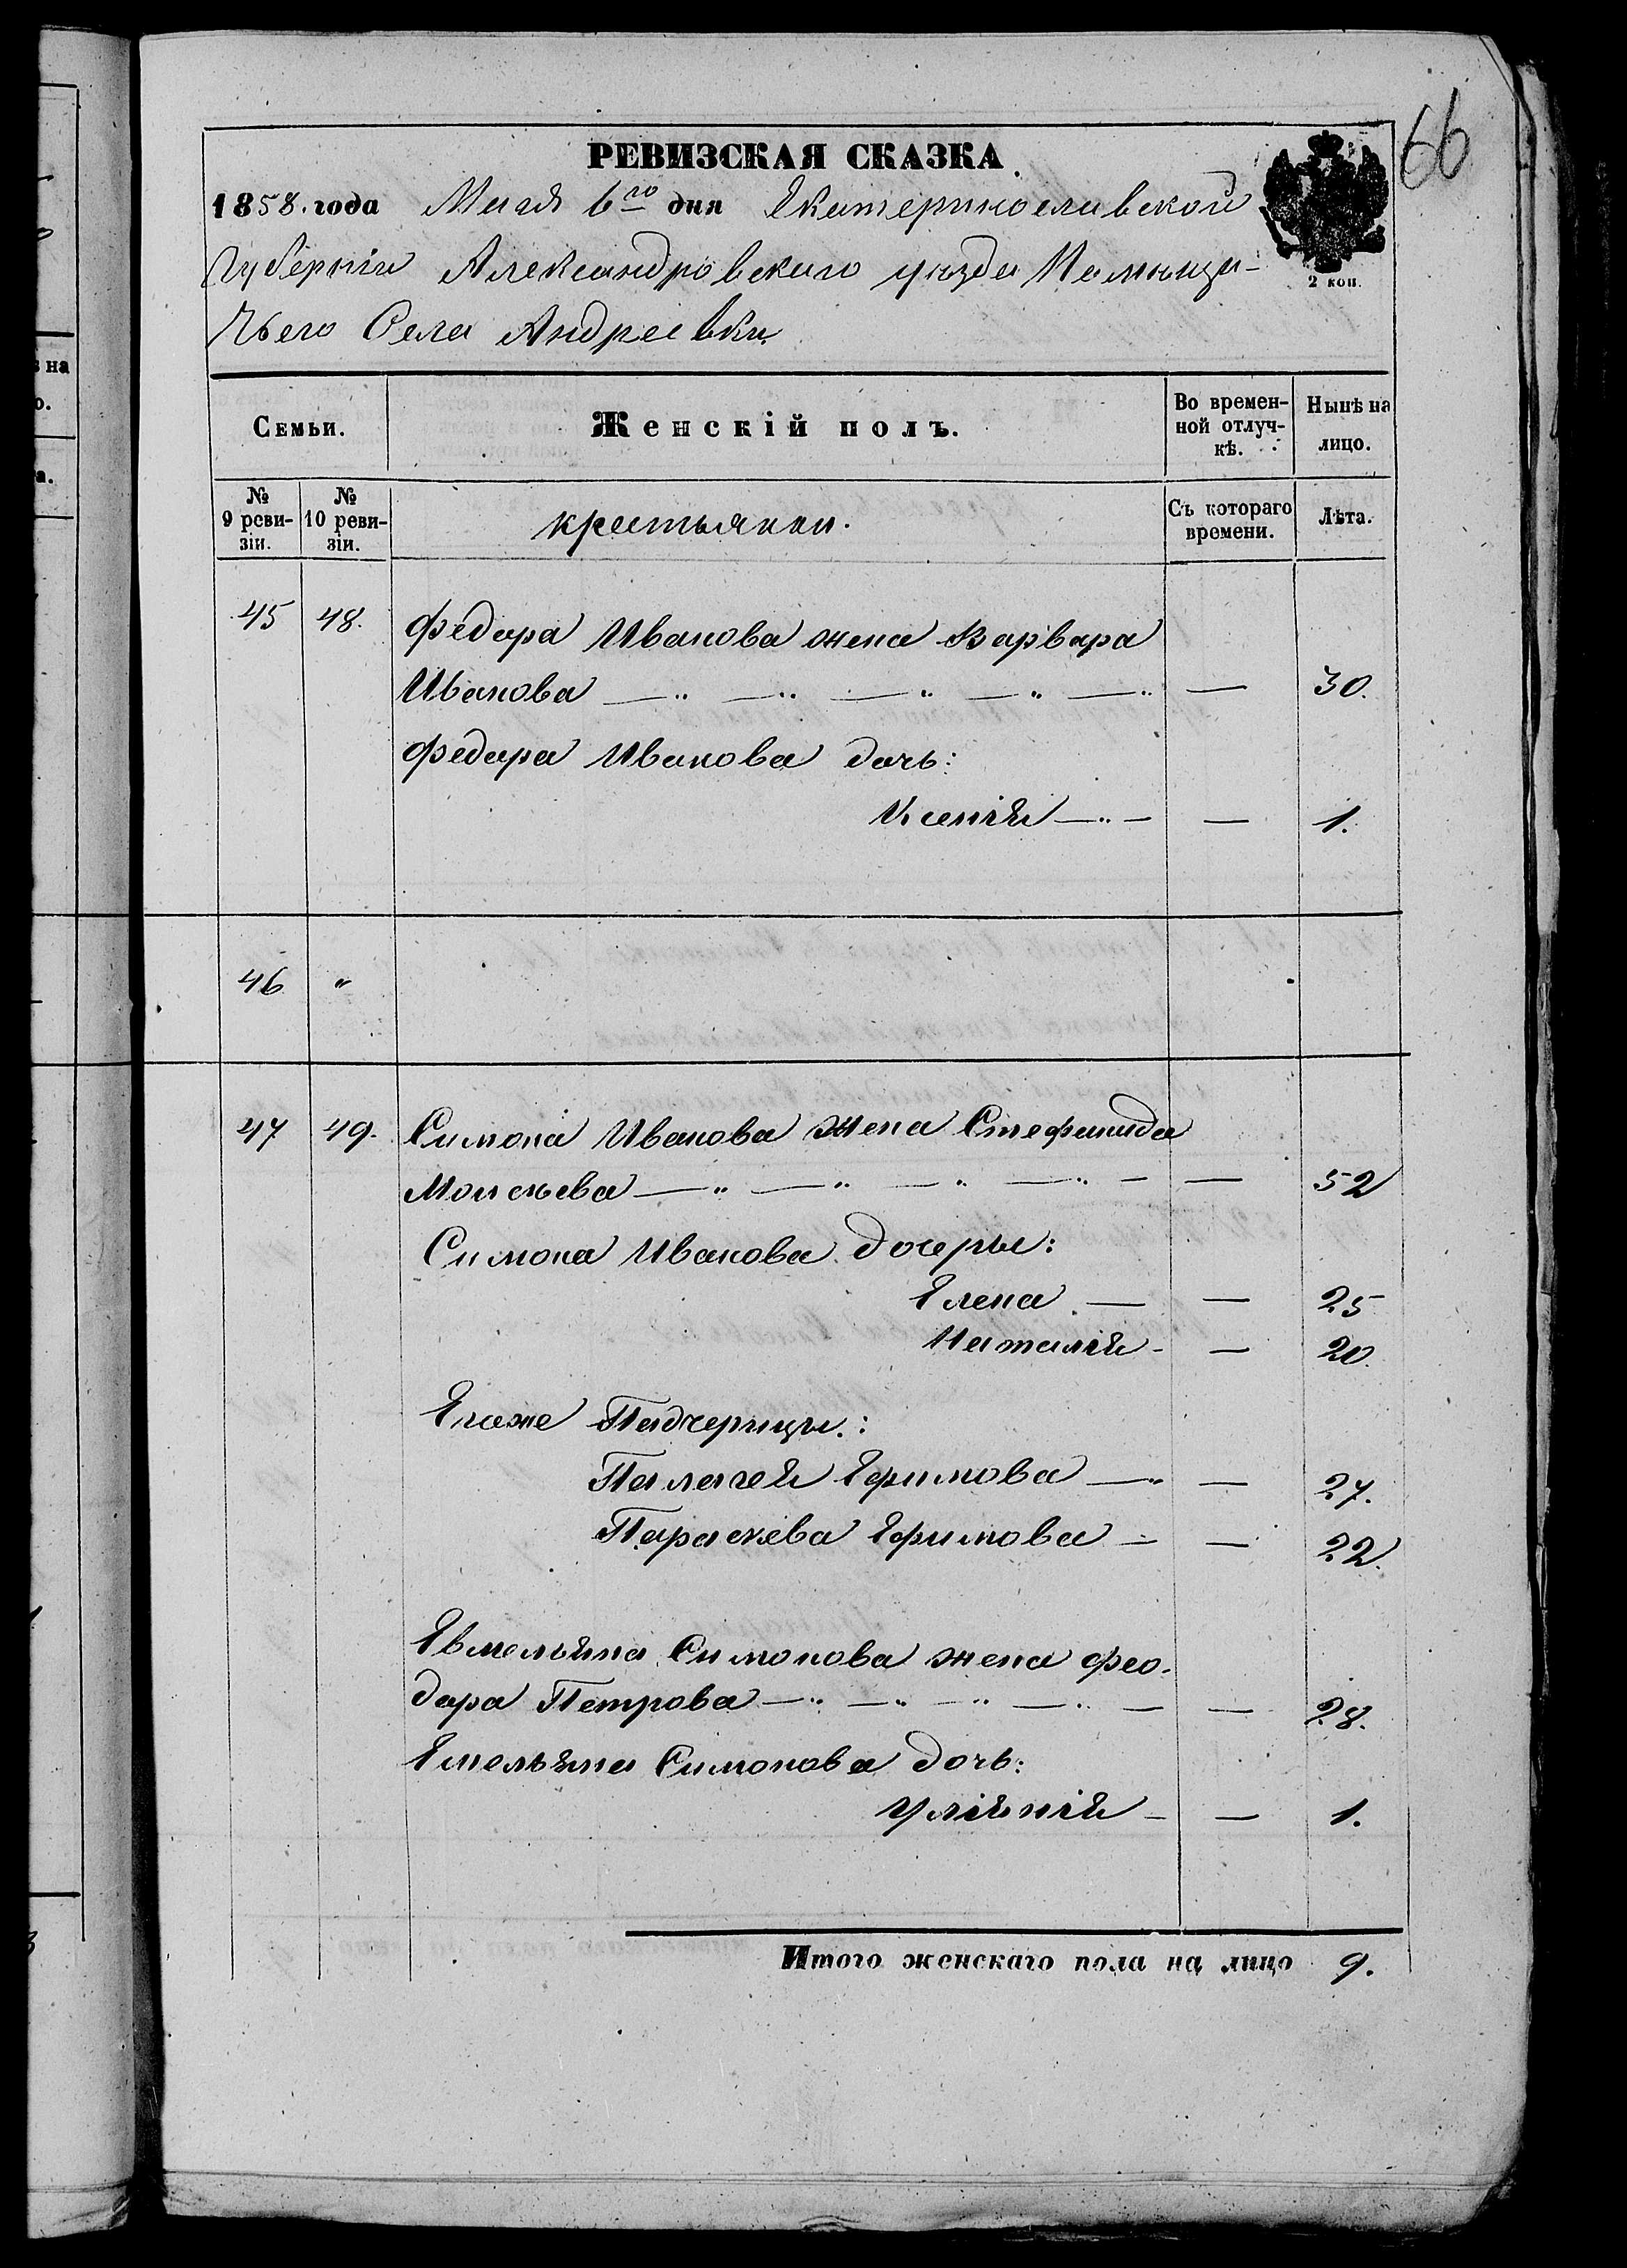 66
РЕВИЗСКАЯ СКАЗКА.
1858. года Маія 6го дня Екатеринославской
Губерніи Александровскаго уѣзда Помѣщи-
чьего Села Андреевки
2 коп.
Семьи.
Женскій полъ.
Во времен-
ной отлуч-
кѣ.
Нынѣ на
лицо.
№
9 реви-
зіи.
№
10 реви-
зіи.
крестьянки.
Съ котораго
времени.
Лѣта.
45 48. Федора Иванова жена Варвара
Иванова — — 30.
Федора Иванова дочь:
Ксенія — — 1.
46 "
47 49. Симона Иванова жена Стефанида
Моисеева — — 52
Симона Иванова дочеры:
Елена — — 25
Наталія - — 20.
Егоже Падчерицы:
Палагея Ефимова — — 27.
Параскева Ефимова — — 22.
Евмельяна Симонова жена Фео-
дора Петрова — — 28.
Емельяна Симонова дочь:
Уліянія - — 1.
Итого женскаго пола на лицо 9.
на
о.
а.